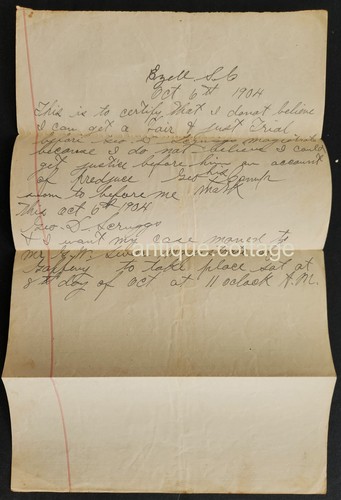 Ezell S.C
Oct 6th 1904
This is to certify that I donot believe
I can get a Fair & Just Trial
before Geo D Scruggs magistrate
because I do not believe I could
get justice before him on account
of Predjuce Geo his
mark
sworn to before me
This Oct 6th 1904
Geo. D. Scruggs
& I want my case moved to
Gaffney to take place Sat at
8th day of Oct at 11 oclock A.M.
antique.cottage